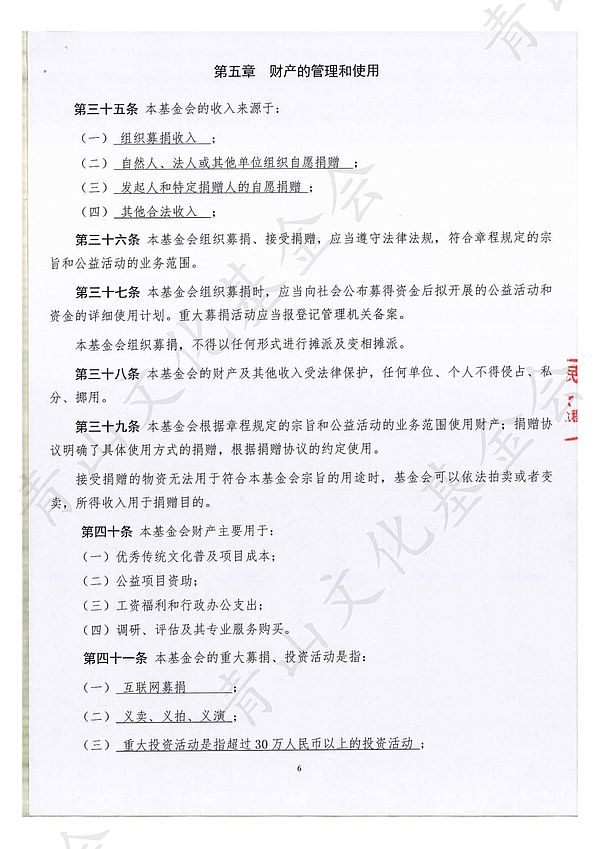 第五章 财产的管理和使用
第三十五条 本基金会的收入来源于：
（一） 组织募捐收入 ；
（二） 自然人、法人或其他单位组织自愿捐赠 ；
（三） 发起人和特定捐赠人的自愿捐赠 ；
（四） 其他合法收入 ；
第三十六条 本基金会组织募捐、接受捐赠，应当遵守法律法规，符合章程规定的宗
旨和公益活动的业务范围。
第三十七条 本基金会组织募捐时，应当向社会公布募得资金后拟开展的公益活动和
资金的详细使用计划。重大募捐活动应当报登记管理机关备案。
本基金会组织募捐，不得以任何形式进行摊派及变相摊派。
第三十八条 本基金会的财产及其他收入受法律保护，任何单位、个人不得侵占、私
分、挪用。
第三十九条 本基金会根据章程规定的宗旨和公益活动的业务范围使用财产；捐赠协
议明确了具体使用方式的捐赠，根据捐赠协议的约定使用。
接受捐赠的物资无法用于符合本基金会宗旨的用途时，基金会可以依法拍卖或者变
卖，所得收入用于捐赠目的。
第四十条 本基金会财产主要用于：
（一）优秀传统文化普及项目成本；
（二）公益项目资助；
（三）工资福利和行政办公支出；
（四）调研、评估及其专业服务购买。
第四十一条 本基金会的重大募捐、投资活动是指：
（一） 互联网募捐 ；
（二） 义卖、义拍、义演 ；
（三） 重大投资活动是指超过 30 万人民币以上的投资活动 ；
6
青山文化基金会
青山文化基金会